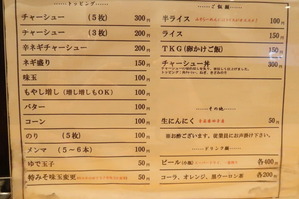 トッピング
チャーシュー （５枚） 300円
チャーシュー （３枚） 200円
辛ネギチャーシュー 200円
ネギ盛り 150円
味玉 100円
もやし増し（増し増しもOK） 100円
バター 100円
コーン 100円
のり （５枚） 100円
メンマ （５～６本） 100円
ゆで玉子 50円
特みそ味玉変更 50円
ご飯類
半ライス 100円
ライス 150円
TKG（卵かけご飯） 150円
チャーシュー丼 300円
その他
生にんにく 50円
※お酢ございます、従業員にお声掛け下さい。
ドリンク類
ビール 各400円
コーラ、オレンジ、黒ウーロン茶 各200円